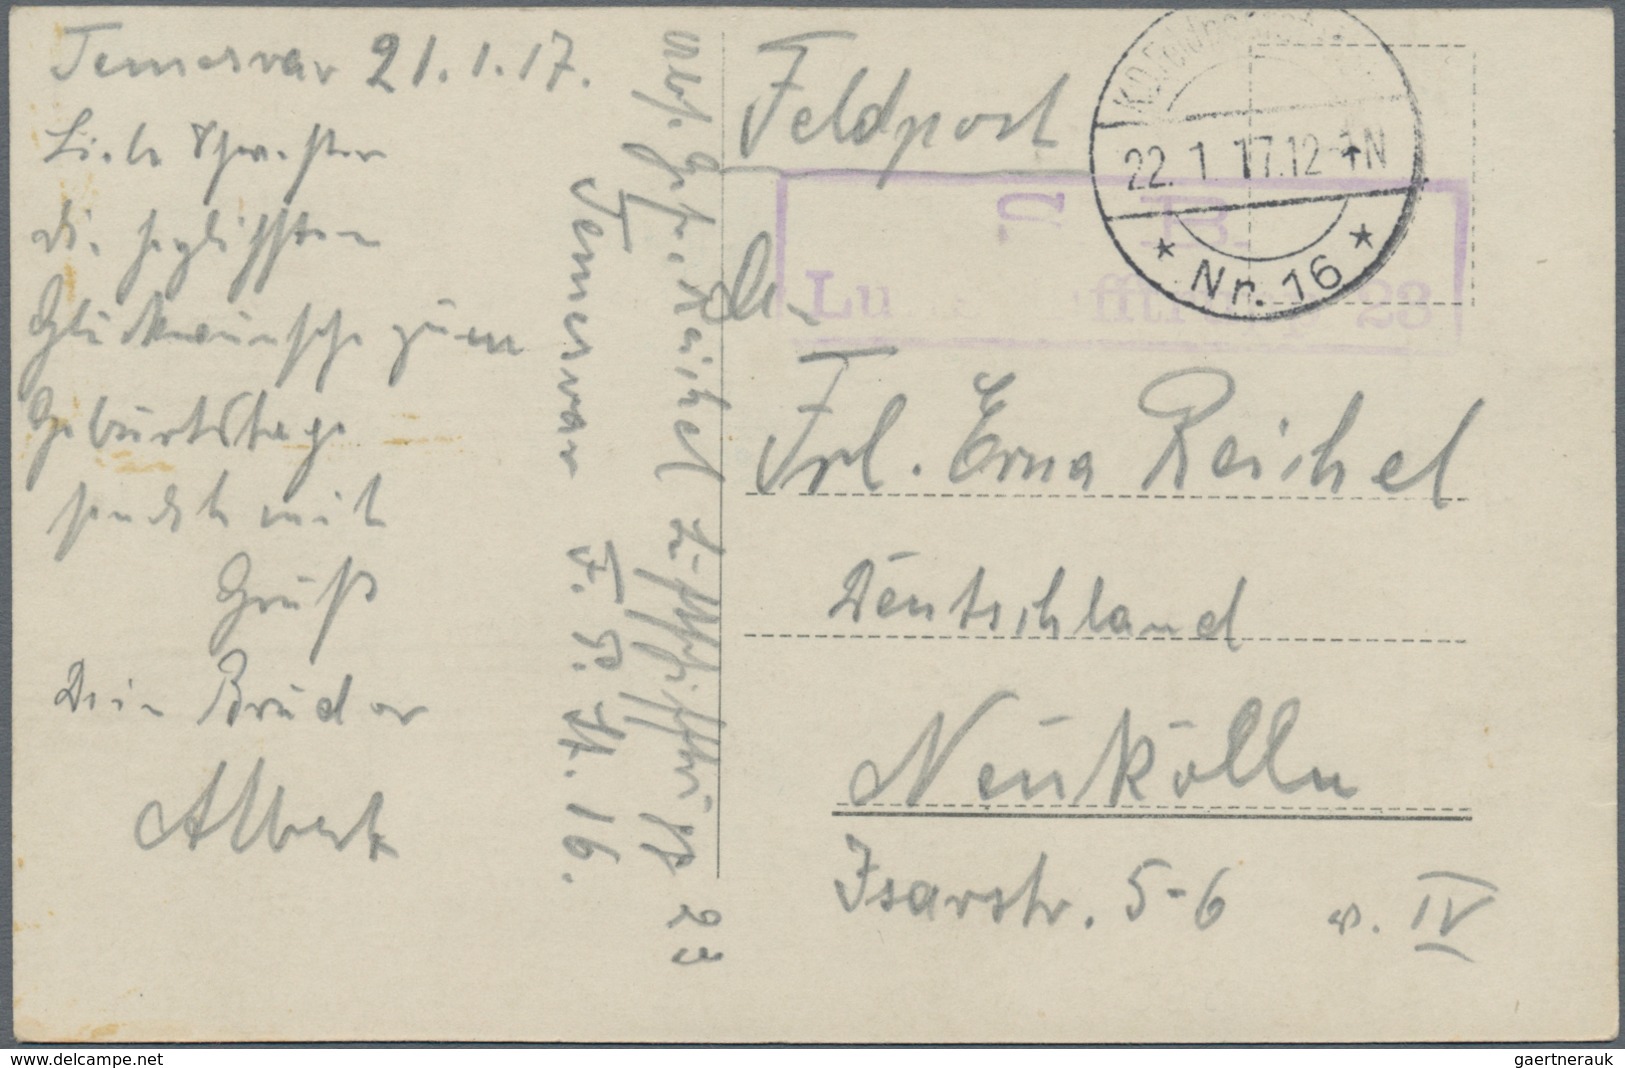 Temesvar 21.1.17.
Liebe Schwester
die herzlichsten
Glückwünsche zum
Geburtstage
sendet mit
Gruß
Dein Bruder
Albert
Abs. Gefr. Reichel Luftschifftrupp 23
Temesvar F. P. St. 16.
Feldpost
An
Frl. Erna Reichel
Deutschland
Neukölln
Isarstr. 5-6 v. IV
22. 1. 17.12-1N
* Nr. 16 *
B.
23
delcampe.net
gaertnerauk